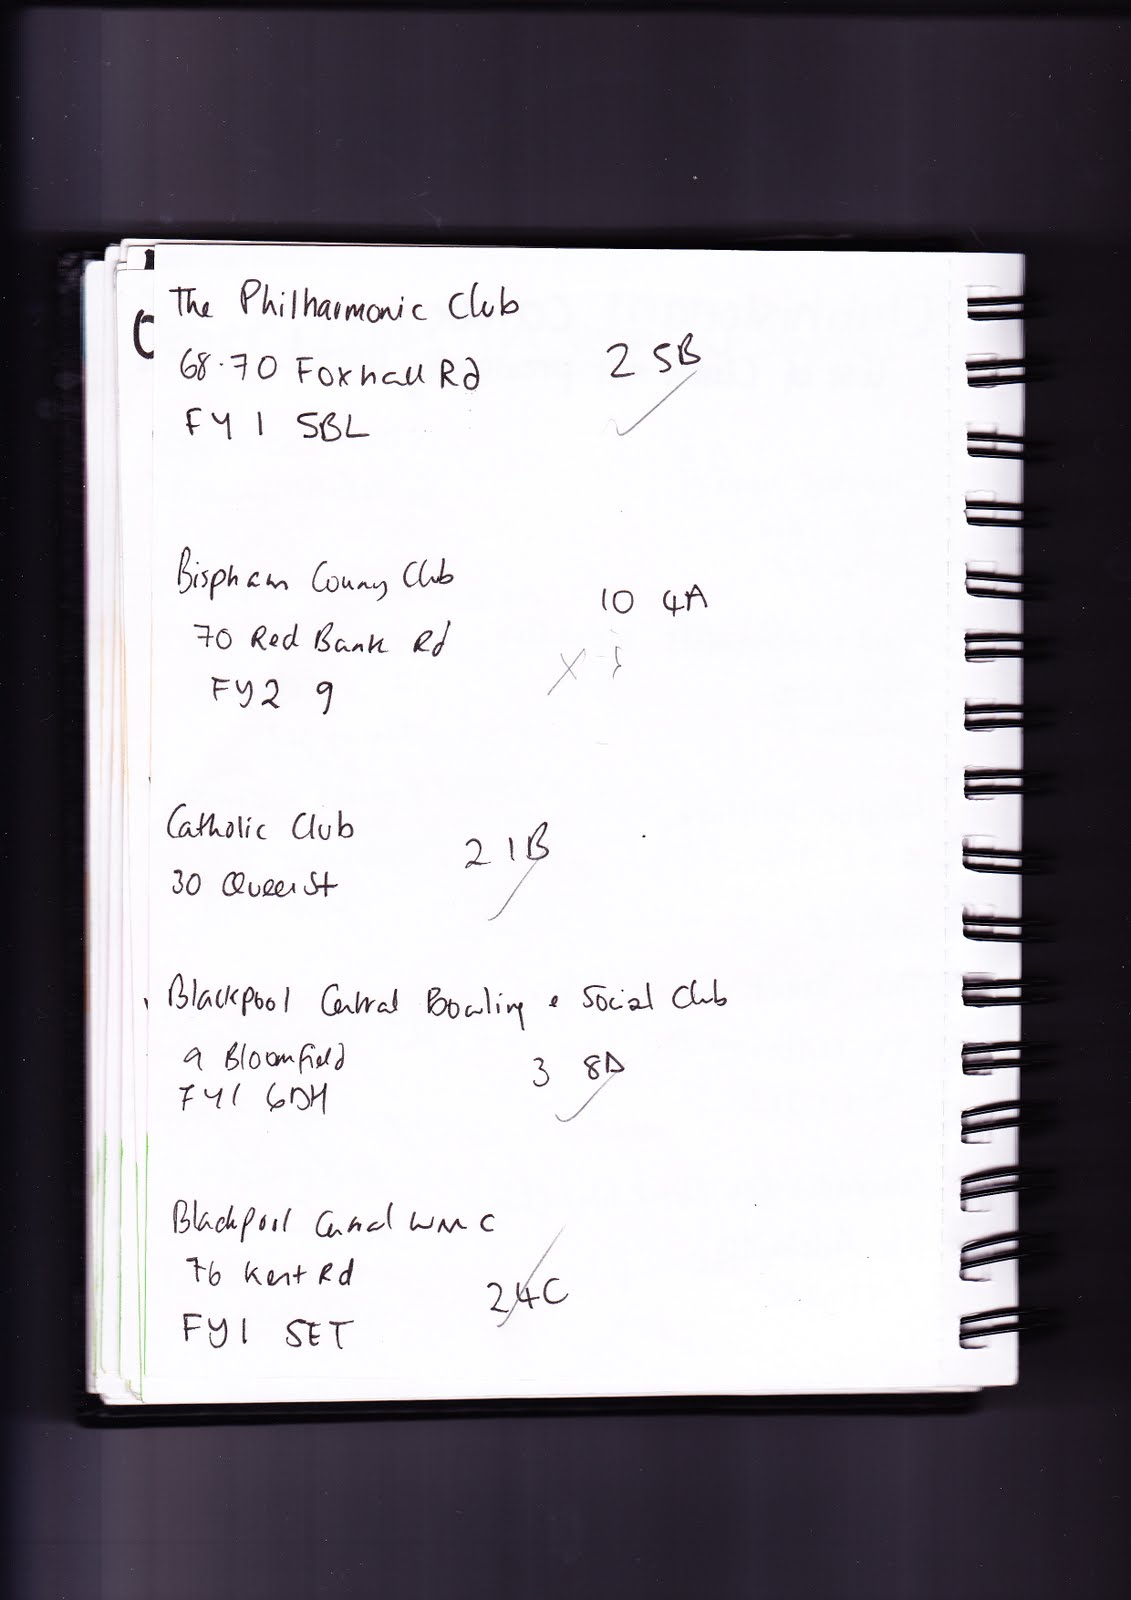 The Philharmonic Club
68-70 Foxhall Rd 2 5B
FY1 5BL
Bispham Conny Club
10 4A
70 Red Bank Rd
FY2 9
Catholic Club
2 1B
30 Queen St
Blackpool Central Bowling & Social Club
9 Bloomfield 3 8D
FY1 6DH
Blackpool Central WMC
76 Kent Rd
24C
FY1 5ET